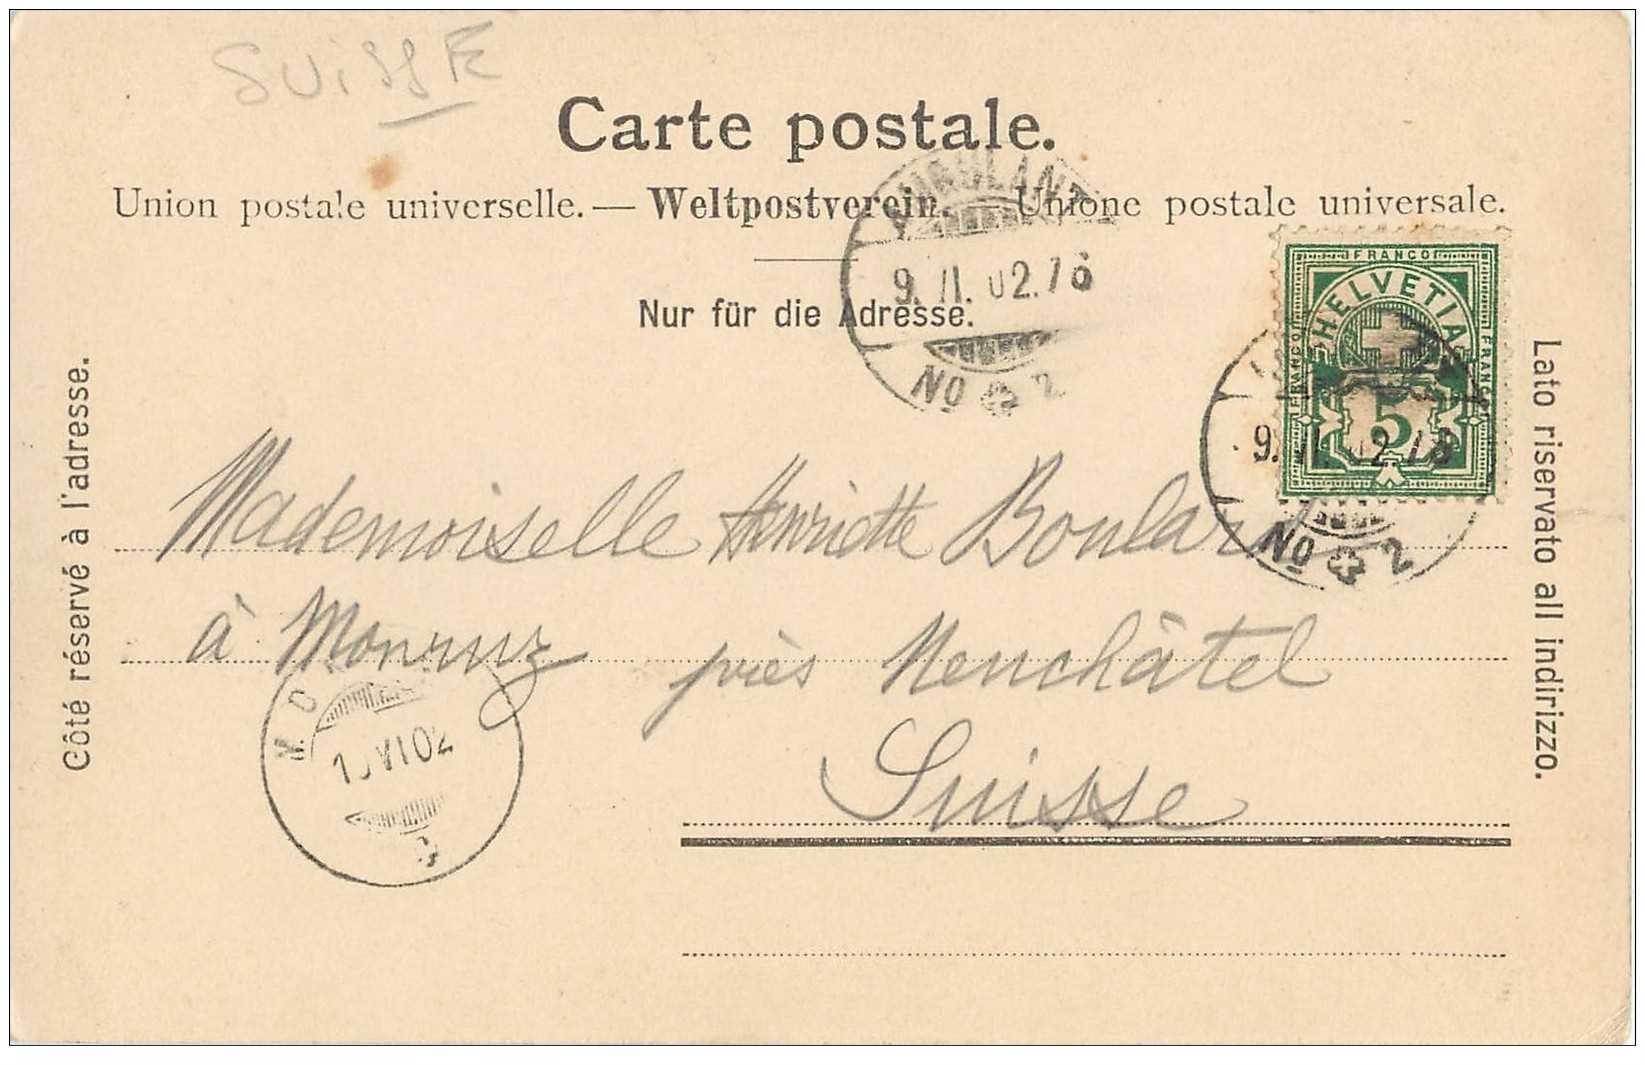 SUISSE
Carte postale.
Union postale universelle. — Weltpostverein. — Unione postale universale.
Nur für die Adresse.
Côté réservé à l'adresse.
Lato riservato all indirizzo.
AMBULANT
9. 02.
No 2
FRANCO
HELVETIA
FRANCO
FRANCO
5
9. 02.
No 2
Mademoiselle Henriette
à Monruz près Neuchâtel
Suisse
VI 02